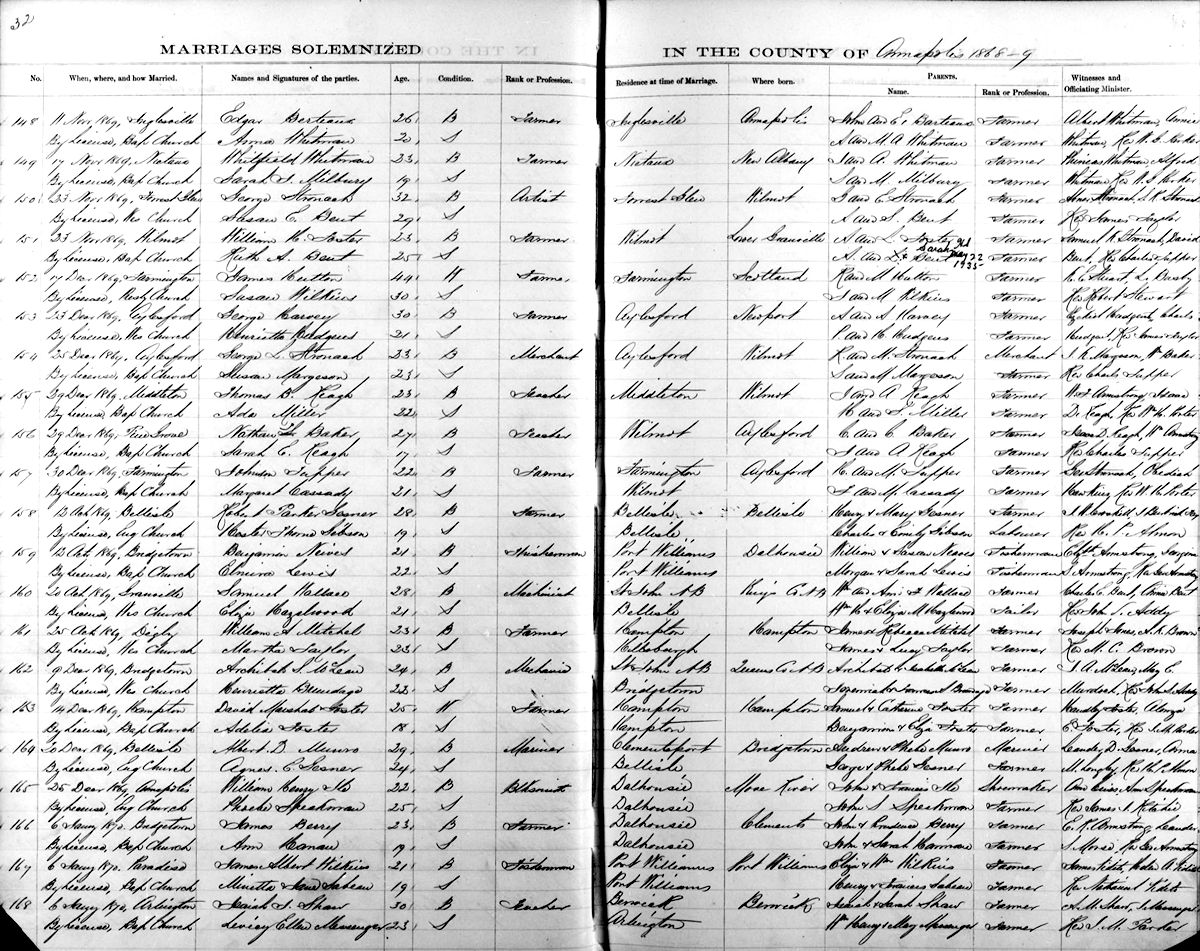 32
MARRIAGES SOLEMNIZED IN THE COUNTY OF Annapolis 1868-9
No. When, where, and how Married. Names and Signatures of the parties. Age. Condition. Rank or Profession. Residence at time of Marriage. Where born. PARENTS. Name. Rank or Profession. Witnesses and Officiating Minister.
148 11 Nov 1869, Inglesville Edgar Berteaux 26 B Farmer Inglesville Annapolis John and E. Berteaux Farmer Albert Whitman, Annie
By License, Bap Church Anna Whitman 20 S S and M A Whitman Farmer Whitman, Rev W. G. Parker
149 17 Novr 1869, Nictaux Whitfield Whitman 23 B Farmer Nictaux New Albany J and A. Whitman Farmer Phineas Whitman, Alfred
By License, Bap Church Sarah J. Milbury 19 S S and M. Milbury Farmer Whitman, Rev W G Parker
150 23 Novr 1869, Forrest Glen George Stronach 32 B Artist Forrest Glen Wilmot I and E Stronach Farmer Abner Stronach, I. R. Stronach
By License, Wes Church Susan E. Bent 29 S A and S. Bent Farmer Rev James Taylor
151 23 Novr 1869, Wilmot William H. Foster 23 B Farmer Wilmot Lower Granville A and L Foster Farmer Samuel K. Stronach, David
By License, Bap Church Ruth A. Bent 25 S A. and Sarah Bent May 22 1935 Farmer Bent, Rev Charles Tupper
152 17 Decr 1869, Farmington James Hutton 49 W Farmer Farmington Scotland R and M Hutton Farmer
By License, Presby Church Susan Wilkins 30 S J and M Wilkins Farmer Rev Robert Stewart
153 23 Decr 1869, Aylesford George Harvey 30 B Farmer Aylesford Newport A and S Harvey Farmer
By License, Wes Church Henrietta Hudgens 21 S P. and H. Hudgens Farmer Hudgens, Rev James Taylor
154 25 Decr 1869, Aylesford George L. Stronach 23 B Merchant Aylesford Wilmot K and M. Stronach Merchant J. R. Margeson, Wm Baker
By License, Bap Church Susan Margeson 23 S J and M. Margeson Farmer Rev Charles Tupper
155 29 Decr 1869, Middleton Thomas B. Reagh 23 B Teacher Middleton Wilmot J and A. Reagh Farmer W. J. Armstrong, Isaac
By License, Bap Church Ada Miller 22 S W and S. Miller Farmer D. Reagh, Rev W. H. Porter
156 29 Decr 1869, Pine Grove Nathan Baker 27 B Teacher Wilmot Aylesford C. and C. Baker Farmer Isaac D. Reagh, Wm Armstrong
By License, Bap Church Sarah E. Reagh 17 S J and A Reagh Farmer Rev Charles Tupper
157 30 Decr 1869, Farmington Johnson Tupper 22 B Farmer Farmington Aylesford C. and M. Tupper Farmer Geo Stronach, Obediah
By License, Bap Church Margaret Cassady 21 S Wilmot J and M. Cassady Farmer Hawkins, Rev W. H. Porter
158 13 Oct 1869, Bellisle Robert Parker Gesner 28 B Farmer Bellisle Bellisle Henry & Mary Gesner Farmer
By License, Eng Church Hester Thorne Gibson 19 S Bellisle Charles & Emily Gibson Labourer Rev H. P. Almon
159 13 Oct 1869, Bridgetown Benjamin Neives 21 B Fisherman Port Williams Dalhousie William & Susan Neaves Fisherman
By License, Bap Church Elmira Lewis 22 S Port Williams Morgan & Sarah Lewis Fisherman Armstrong, Rev Geo Armstrong
160 20 Oct 1869, Granville Samuel Wallace 28 B Machinist St John N B Kings Co N B Wm and Ann J Wallace Farmer Charles E. Bent, Bent
By License, Wes Church Eliza Hazelwood 21 S Bellisle Wm H. & Eliza M Hazlewood Tailor Rev John S. Addy
161 25 Oct 1869, Digby William A Mitchel 23 B Farmer Hampton Hampton James & Rebecca Mitchel Farmer Joseph Jones, A. K. Brown
By License, Wes Church Martha Taylor 23 S Hillsburgh James & Lucy Taylor Farmer Rev M. C. Brown
162 9 Decr 1869, Bridgetown Archibald S. McLean 24 B Mechanic St John N B Queens Co N B Archibald & McLean Farmer J A McLean, May E.
By License, Wes Church Henrietta Brundage 22 S Bridgetown Jeremiah & Brundage Farmer Murdoch, Rev John S. Addy
163 14 Decr 1869, Hampton David Marshall Foster 25 W Farmer Hampton Hampton Samuel & Catherine Foster Farmer Handley Foster, Alonzo
By License, Bap Church Adelia Foster 18 S Hampton Benjamin & Eliza Foster Farmer E Foster, Rev I. M. Parker
164 20 Decr 1869, Bellisle Albert D. Munro 29 B Mariner Clementsport Bridgetown Andrew & Phebe Munro Mariner Leander D. Gesner, Anna
By License, Eng Church Agnes E. Gesner 24 S Bellisle & Phebe Gesner Farmer M. Longley, Rev H P. Almon
165 25 Decr 1869, Annapolis William Henry 22 B Blksmith Dalhousie Moose River John & Frances Shoemaker Ann Speakman
By License, Eng Church Phoebe Speakman 25 S Dalhousie John S Speakman Farmer Rev James J. Ritchie
166 6 Jany 1870, Bridgetown James Berry 23 B Farmer Dalhousie Clements John & Prudence Berry Farmer E. R. Armstrong, Leander
By License, Bap Church Ann Hanan 19 S Dalhousie John & Sarah Farmer S. Morse, Rev Geo Armstrong
167 6 Jany 1870, Paradise James Albert Wilkins 21 B Fisherman Port Williams Port Williams Eliza & Wm Wilkins Farmer
By License, Bap Church Minetta Jane Sabean 19 S Port Williams Henry & Frances Sabean Farmer Rev Nathaniel Viditoe
168 6 Jany 1870, Arlington Isaiah S. Shaw 30 B Teacher Berwick Berwick Isaiah & Sarah Shaw Farmer A. M. Shaw, S. Messenger
By License, Bap Church Levicy Ellen Messenger 23 S Arlington Wm Henry & Mary Messenger Farmer Rev I. M. Parker